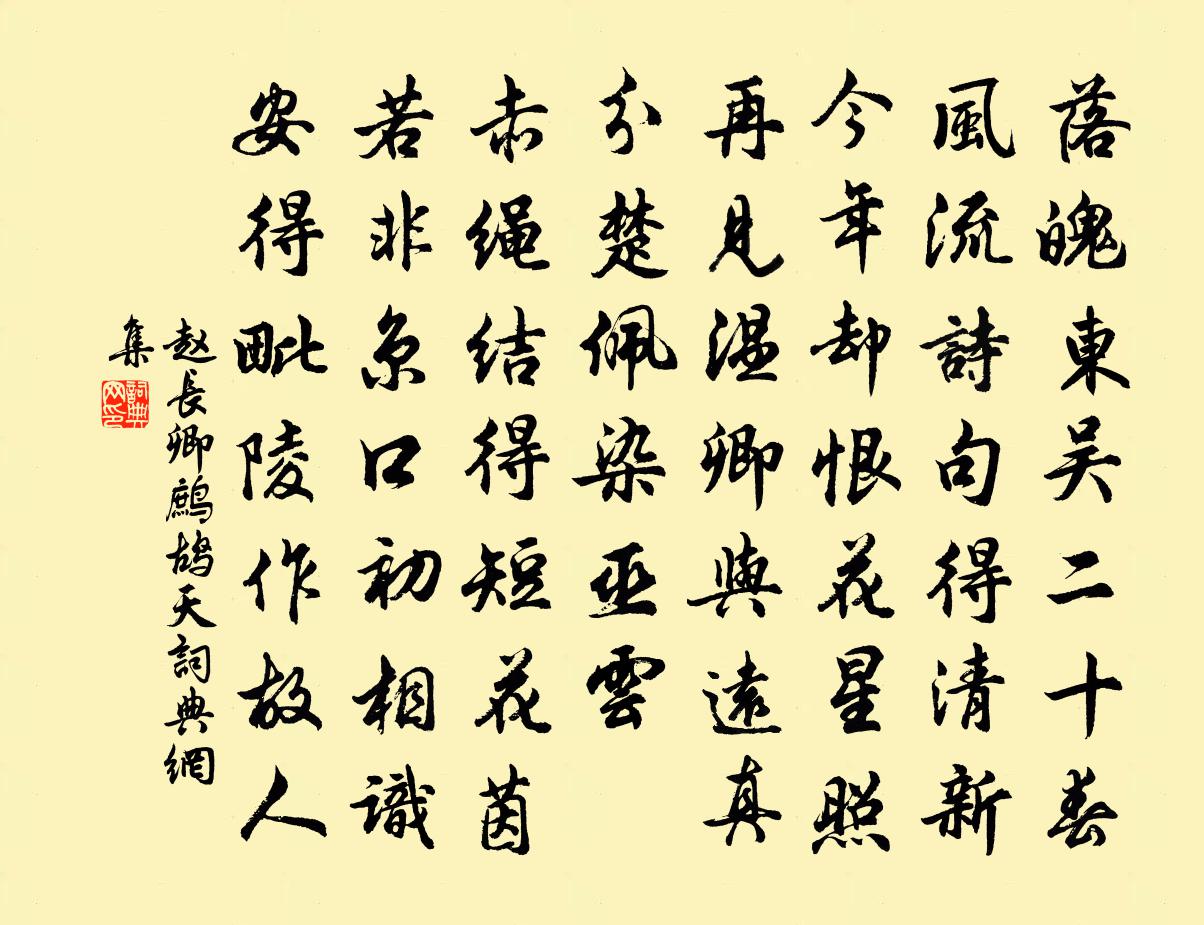 落魄東吴二十春
風流詩句得清新
今年却恨花星照
再見温卿與遠真
分楚佩染巫雲
赤绳结得短花茵
若非京口初相識
安得毗陵作故人
赵長卿鷓鸪天詞典網
集
詞典
网印